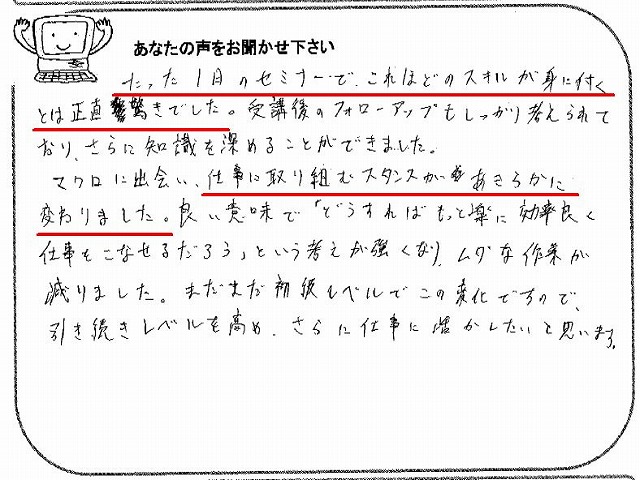 あなたの声をお聞かせ下さい
たった1日のセミナーで、これほどのスキルが身に付く
とは正直驚きでした。受講後のフォローアップもしっかり考えられて
おり、さらに知識を深めることができました。
マクロに出会い、仕事に取り組むスタンスが あきらかに
変わりました。良い意味で「どうすればもっと楽に効率良く
仕事をこなせるだろう」という考えが強くなり、ムダな作業が
減りました。まだまだ初級レベルでこの変化ですので、
引き続きレベルを高め、さらに仕事に活かしたいと思います。